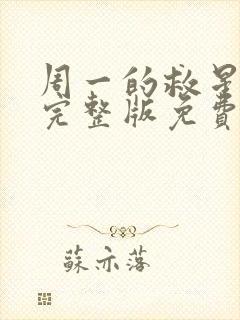 周一的救星
完整版免費
蘇亦落